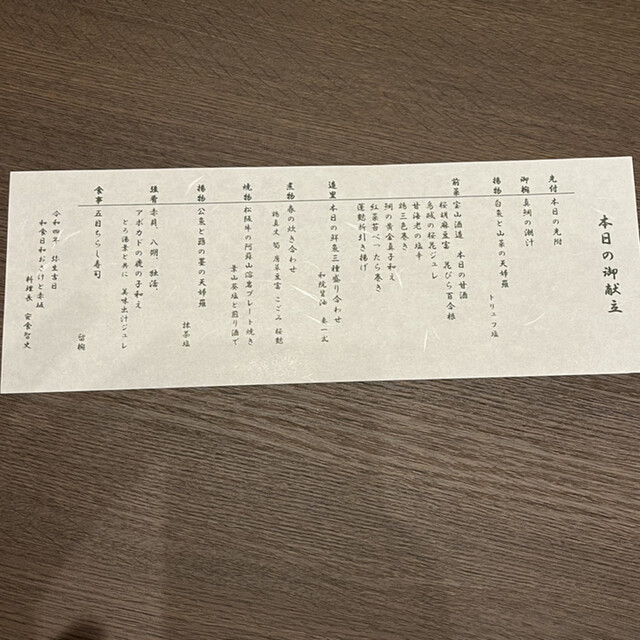 本日の御献立
先付 本日の先附
御椀 真鯛の潮汁
揚物 白魚と山菜の天婦羅
トリュフ塩
前菜 宝山酒道 本日の甘酒
桜胡麻豆富 花びら百合根
鳥城の桜花ジュレ
甘海老の塩辛
鶏三色巻き
鯛の黄金真子和え
紅菜苔べったら巻き
蓮麩折引き揚げ
造里 本日の鮮魚三種盛り合わせ
和院醤油 来一式
煮物 春の炊き合わせ
鶏真丈 筍 唐草豆富 こごみ 桜麩
焼物 松阪牛の阿蘇山溶岩プレート焼き
葉山茶塩と煎り酒で
揚物 公魚と蕗の薹の天婦羅
抹茶塩
強肴 赤貝、八朔、独活、
アボカドの鹿の子和え
とろ湯葉と共に 美味出汁ジュレ
食事 五目ちらし寿司
留椀
令和四年 弥生吉日
和食日和おさけと赤坂
料理長 安食智史